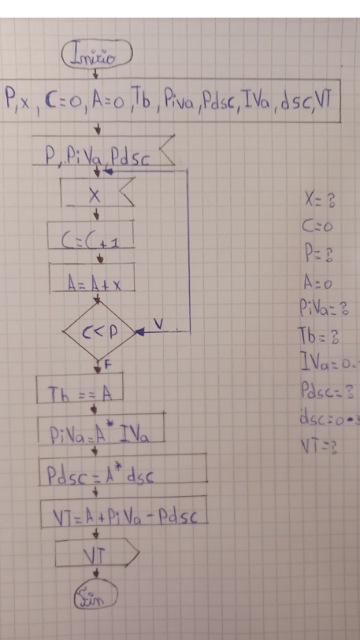 Inicio
P, x, C=0, A=0, Tb, Piva, Pdsc, IVa, dsc, VT
P, PiVa, Pdsc
X
C=C+1
A=A+x
C<P
V
F
Tb == A
PiVa=A* IVa
Pdsc=A* dsc
VT=A+PiVa-Pdsc
VT
Fin
X=?
C=0
P=?
A=0
PiVa=?
Tb=?
IVa=0.
Pdsc=?
dsc=0
VT=?